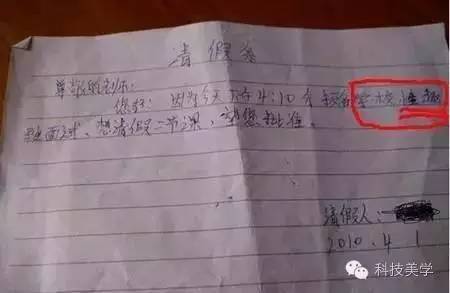 请假条
尊敬的刘师:
您好: 因为今天下午4:10分 学校性趣
班面试、想请假二节课,望您批准。
请假人:
2010.4 1
科技美学